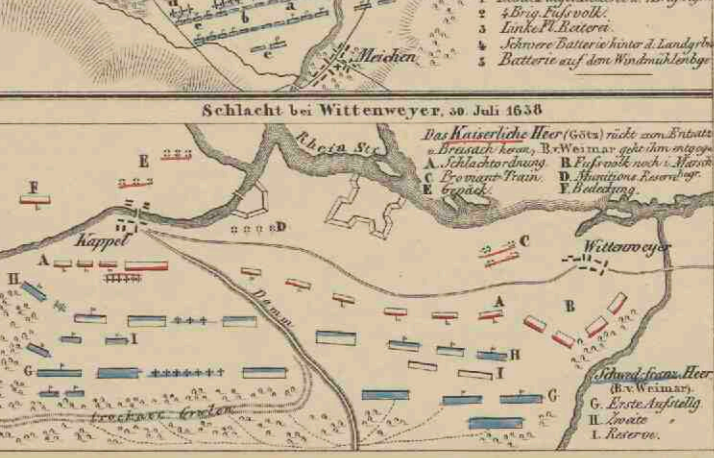 a
b
a
e
c
Meichen
2 4 Brig. Fußvolk.
3 Linke Fl. Reiterei.
4 Schwere Batterie hinter d. Landgr
5 Batterie auf dem Windmühlenbge
Schlacht bei Wittenweyer, 30. Juli 1638
Das Kaiserliche Heer (Götz) rückt zum Entsatz
v. Breisach heran, B. v. Weimar geht ihm entgege
A. Schlachtordnung. B. Fußvolk noch i. Marsch
C Proviant-Train. D. Munitions Reserve
E Gepäck. F. Bedeckung.
Rhein Str.
E
F
D
Kappel
C
Wittenweyer
A
H
Damm
A
B
I
H
I
G
G
trockner Graben
Schwed. franz. Heer
(B. v. Weimar).
G. Erste Aufstellg
H. Zweite "
I. Reserve.